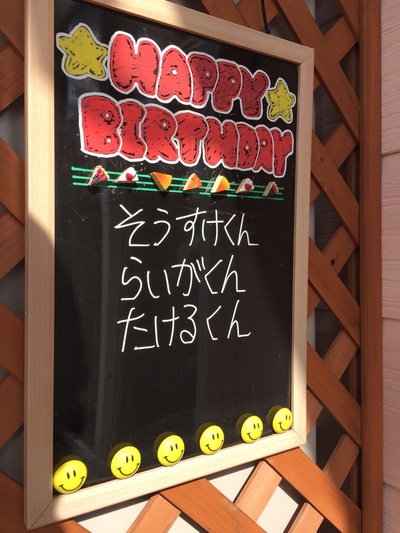 HAPPY
BIRTHDAY
そうすけくん
らいがくん
たけるくん